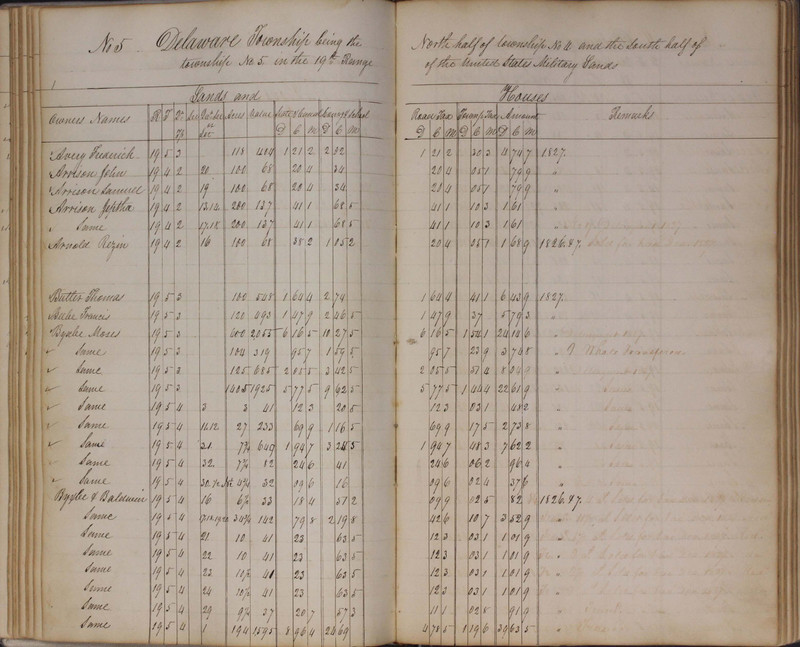 No 5 Delaware Township being the
township No 5 in the 19th Range
North half of township No 4 and the South half of
of the United States Military Lands
1
Lands and
Houses
Owners Names R T Acres Value State & Canal County & School
D C M D C M
Road Tax Amount Remarks
D C M D C M D C M
Avery Frederick 19 5 3 118 404 1 21 2 2 02 1 21 2 30 3 4 74 7 1827.
Arrison John 19 4 2 20 100 68 20 4 34 20 4 05 1 79 9 "
Arrison Samuel 19 4 2 19 100 68 20 4 34 20 4 05 1 79 9 "
Arrison Jeptha 19 4 2 13.14. 200 137 41 1 68 5 41 1 10 3 1 61 "
" Same 19 4 2 17.18 200 137 41 1 68 5 41 1 10 3 1 61 "
Arnold Rezin 19 4 2 16 100 68 38 2 1 05 2 20 4 05 1 1 68 9 1826.&7.
Butler Thomas 19 5 3 100 548 1 64 4 2 74 1 64 4 41 1 6 43 9 1827.
Beebe Francis 19 5 3 120 493 1 47 9 2 46 5 1 47 9 37 5 79 3 "
Byxbe Moses 19 5 3 600 2055 6 16 5 10 27 5 6 16 5 1 54 1 24 14 6 "
" Same 19 5 3 104 319 95 7 1 59 5 95 7 23 9 3 74 8 "
" Same 19 5 3 125 685 2 05 5 3 42 5 2 05 5 51 4 8 04 9 "
" Same 19 5 3 1405 1925 5 77 5 9 62 5 5 77 5 1 44 4 22 61 9 "
" Same 19 5 4 3 3 41 12 3 20 5 12 3 03 1 48 2 "
" Same 19 5 4 11.12. 27 233 69 9 1 16 5 69 9 17 5 2 73 8 "
" Same 19 5 4 31 7¾ 649 1 94 7 3 24 5 1 94 7 48 7 7 62 2 "
" Same 19 5 4 32. 7¾ 82 24 6 41 24 6 06 2 96 4 "
" Same 19 5 4 4¾ 32 09 6 16 09 6 02 4 37 6 "
Byxbe & Baldwin 19 5 4 16 6¾ 33 18 4 51 2 09 9 02 5 82 1826.&7.
Same 19 5 4 17.18.19.20 34¾ 142 79 8 2 19 8 42 6 10 7 3 52 9 "
Same 19 5 4 21. 10 41 23 63 5 12 3 03 1 1 01 9 "
Same 19 5 4 22 10 41 23 63 5 12 3 03 1 1 01 9 "
Same 19 5 4 23 10½ 41 23 63 5 12 3 03 1 1 01 9 "
Same 19 5 4 24 10½ 41 23 63 5 12 3 03 1 1 01 9 "
Same 19 5 4 29 9¾ 37 20 7 57 3 11 1 02 8 91 9 "
Same 19 5 4 1 194 1595 8 96 4 24 69 4 78 5 1 19 6 39 63 5 "